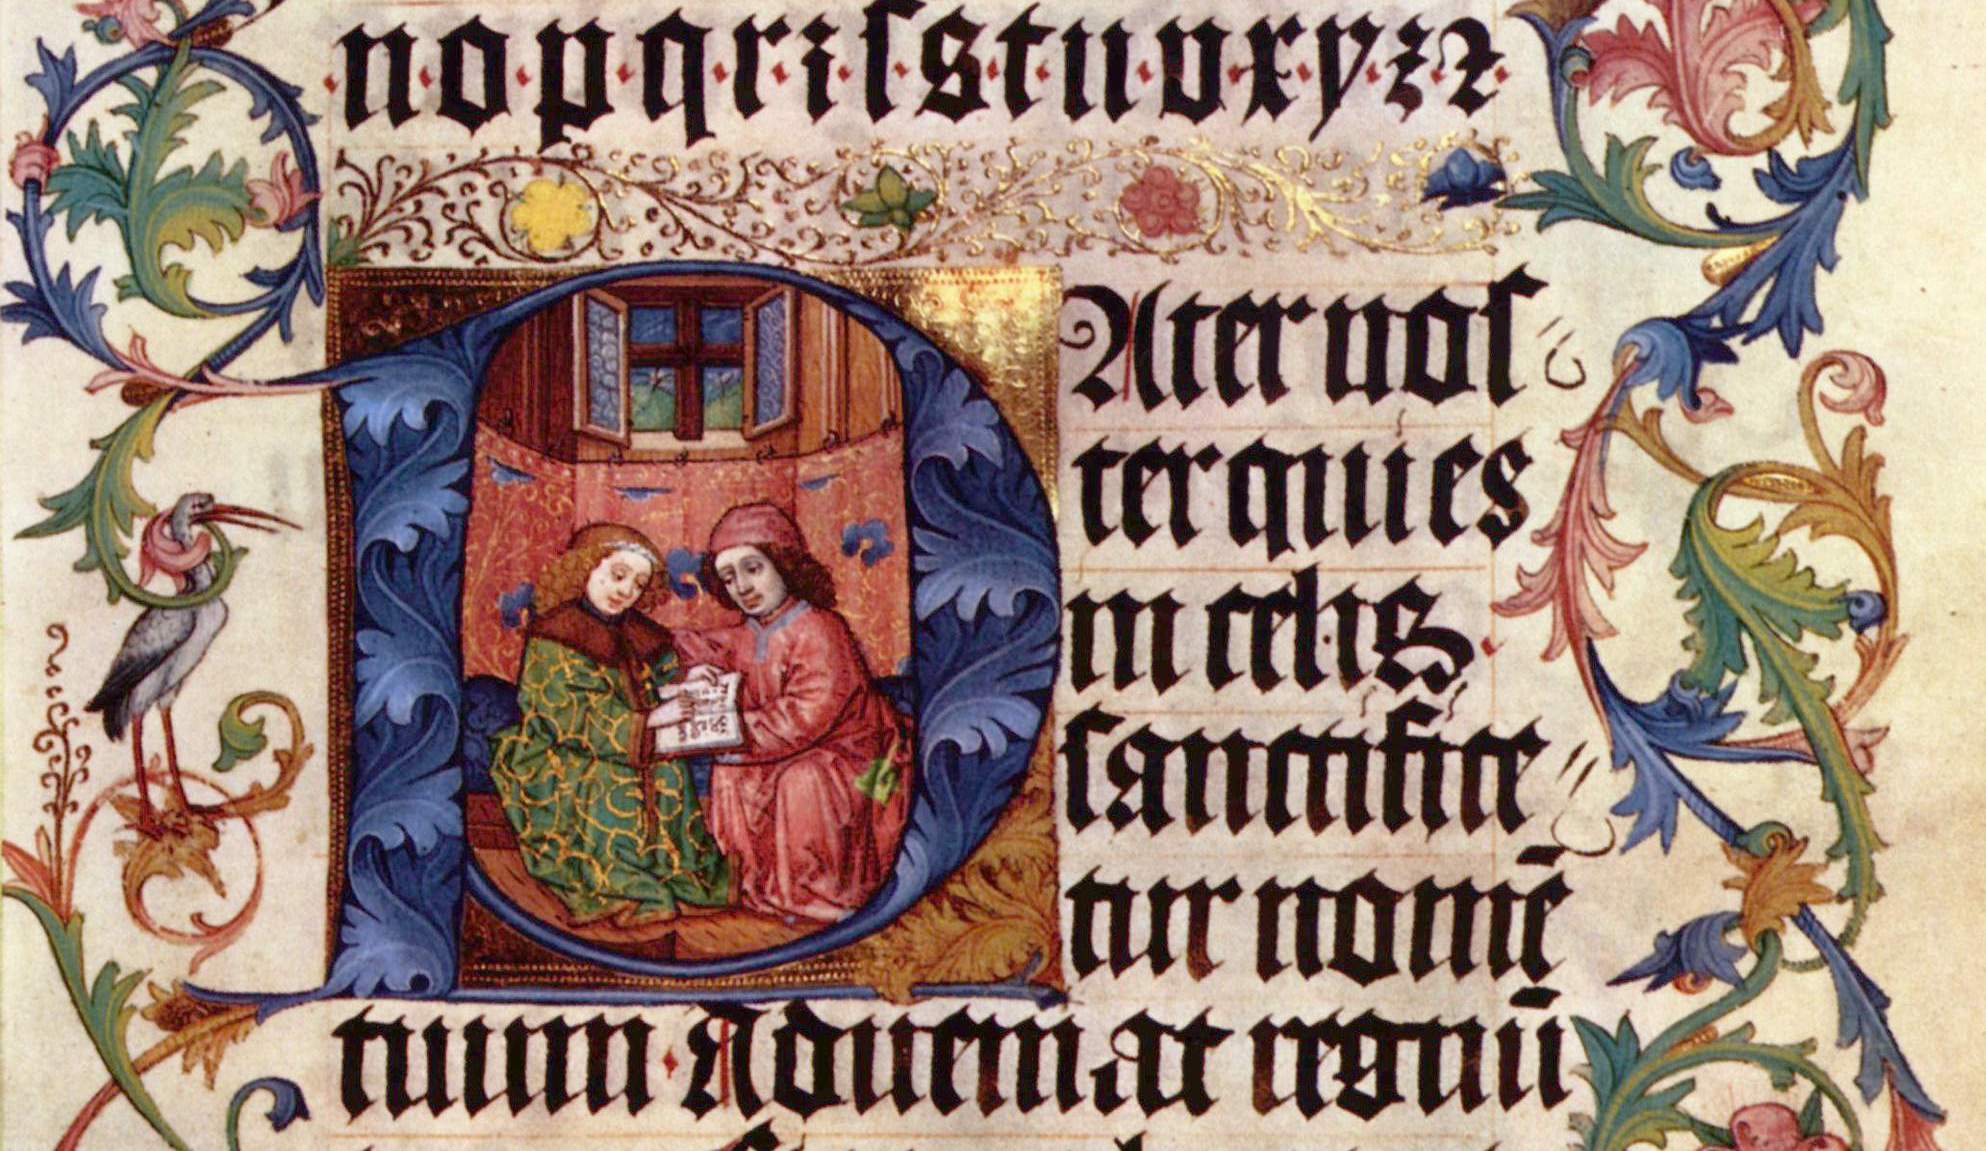 n·o·p·q·r·ꝛ·ſ·s·t·u·v·x·y·z·ꝛ
PAter noſ=
ter qui es
in celis·
ſanctifice=
tur nomē
tuum·Adueniat regnū